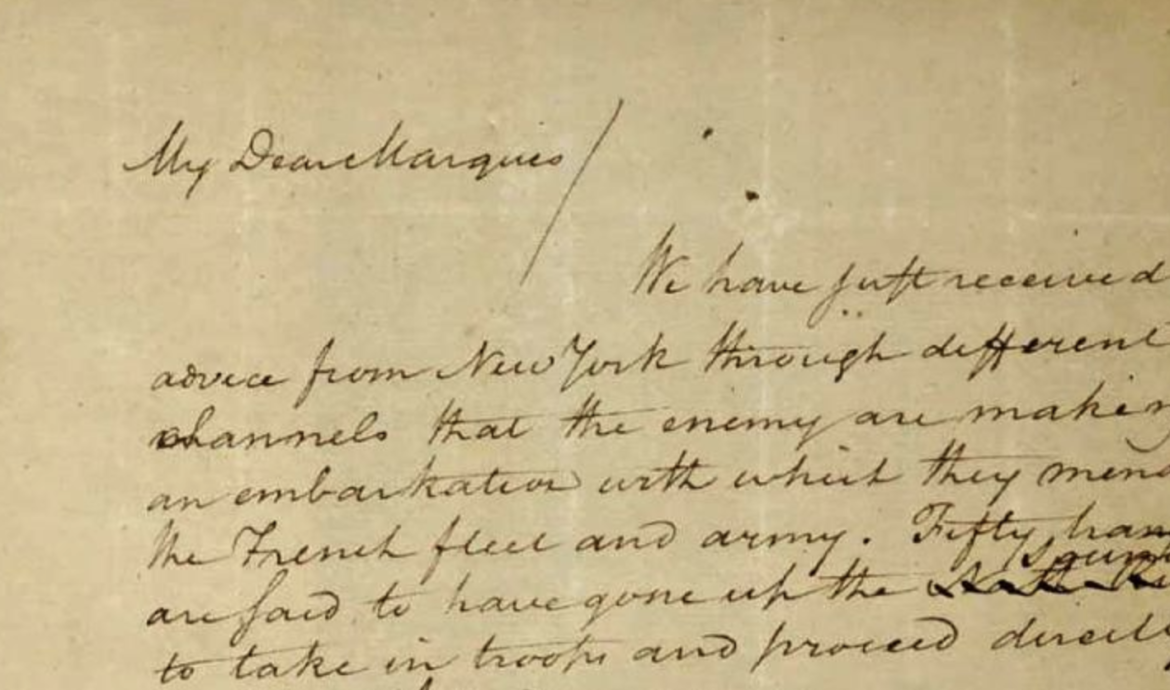 My Dear Marquis
We have just received
advice from New York through different
channels that the enemy are makin
an embarkation with which they mena
the French fleet and army. Fifty tran
are said to have gone up the Sound
to take in troops and proceed directly